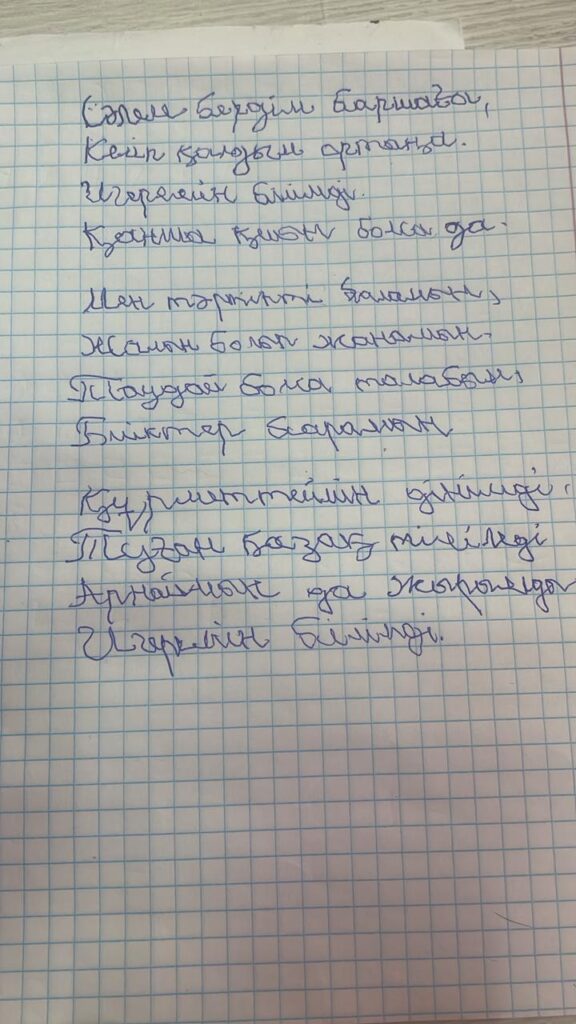 Сәлем бердім баршаңа,
Келіп қалдым ортаңа.
Игеремін білімді.
Қанша қиын болса да.
Мен тәртіпті баламын,
Жалын болып жанамын.
Таудай болса талабым,
Биіктер барамын
Құрметтеймін дінімді.
Туған қазақ тілімді
Арнаймын да жырымды
Игермін білімді.